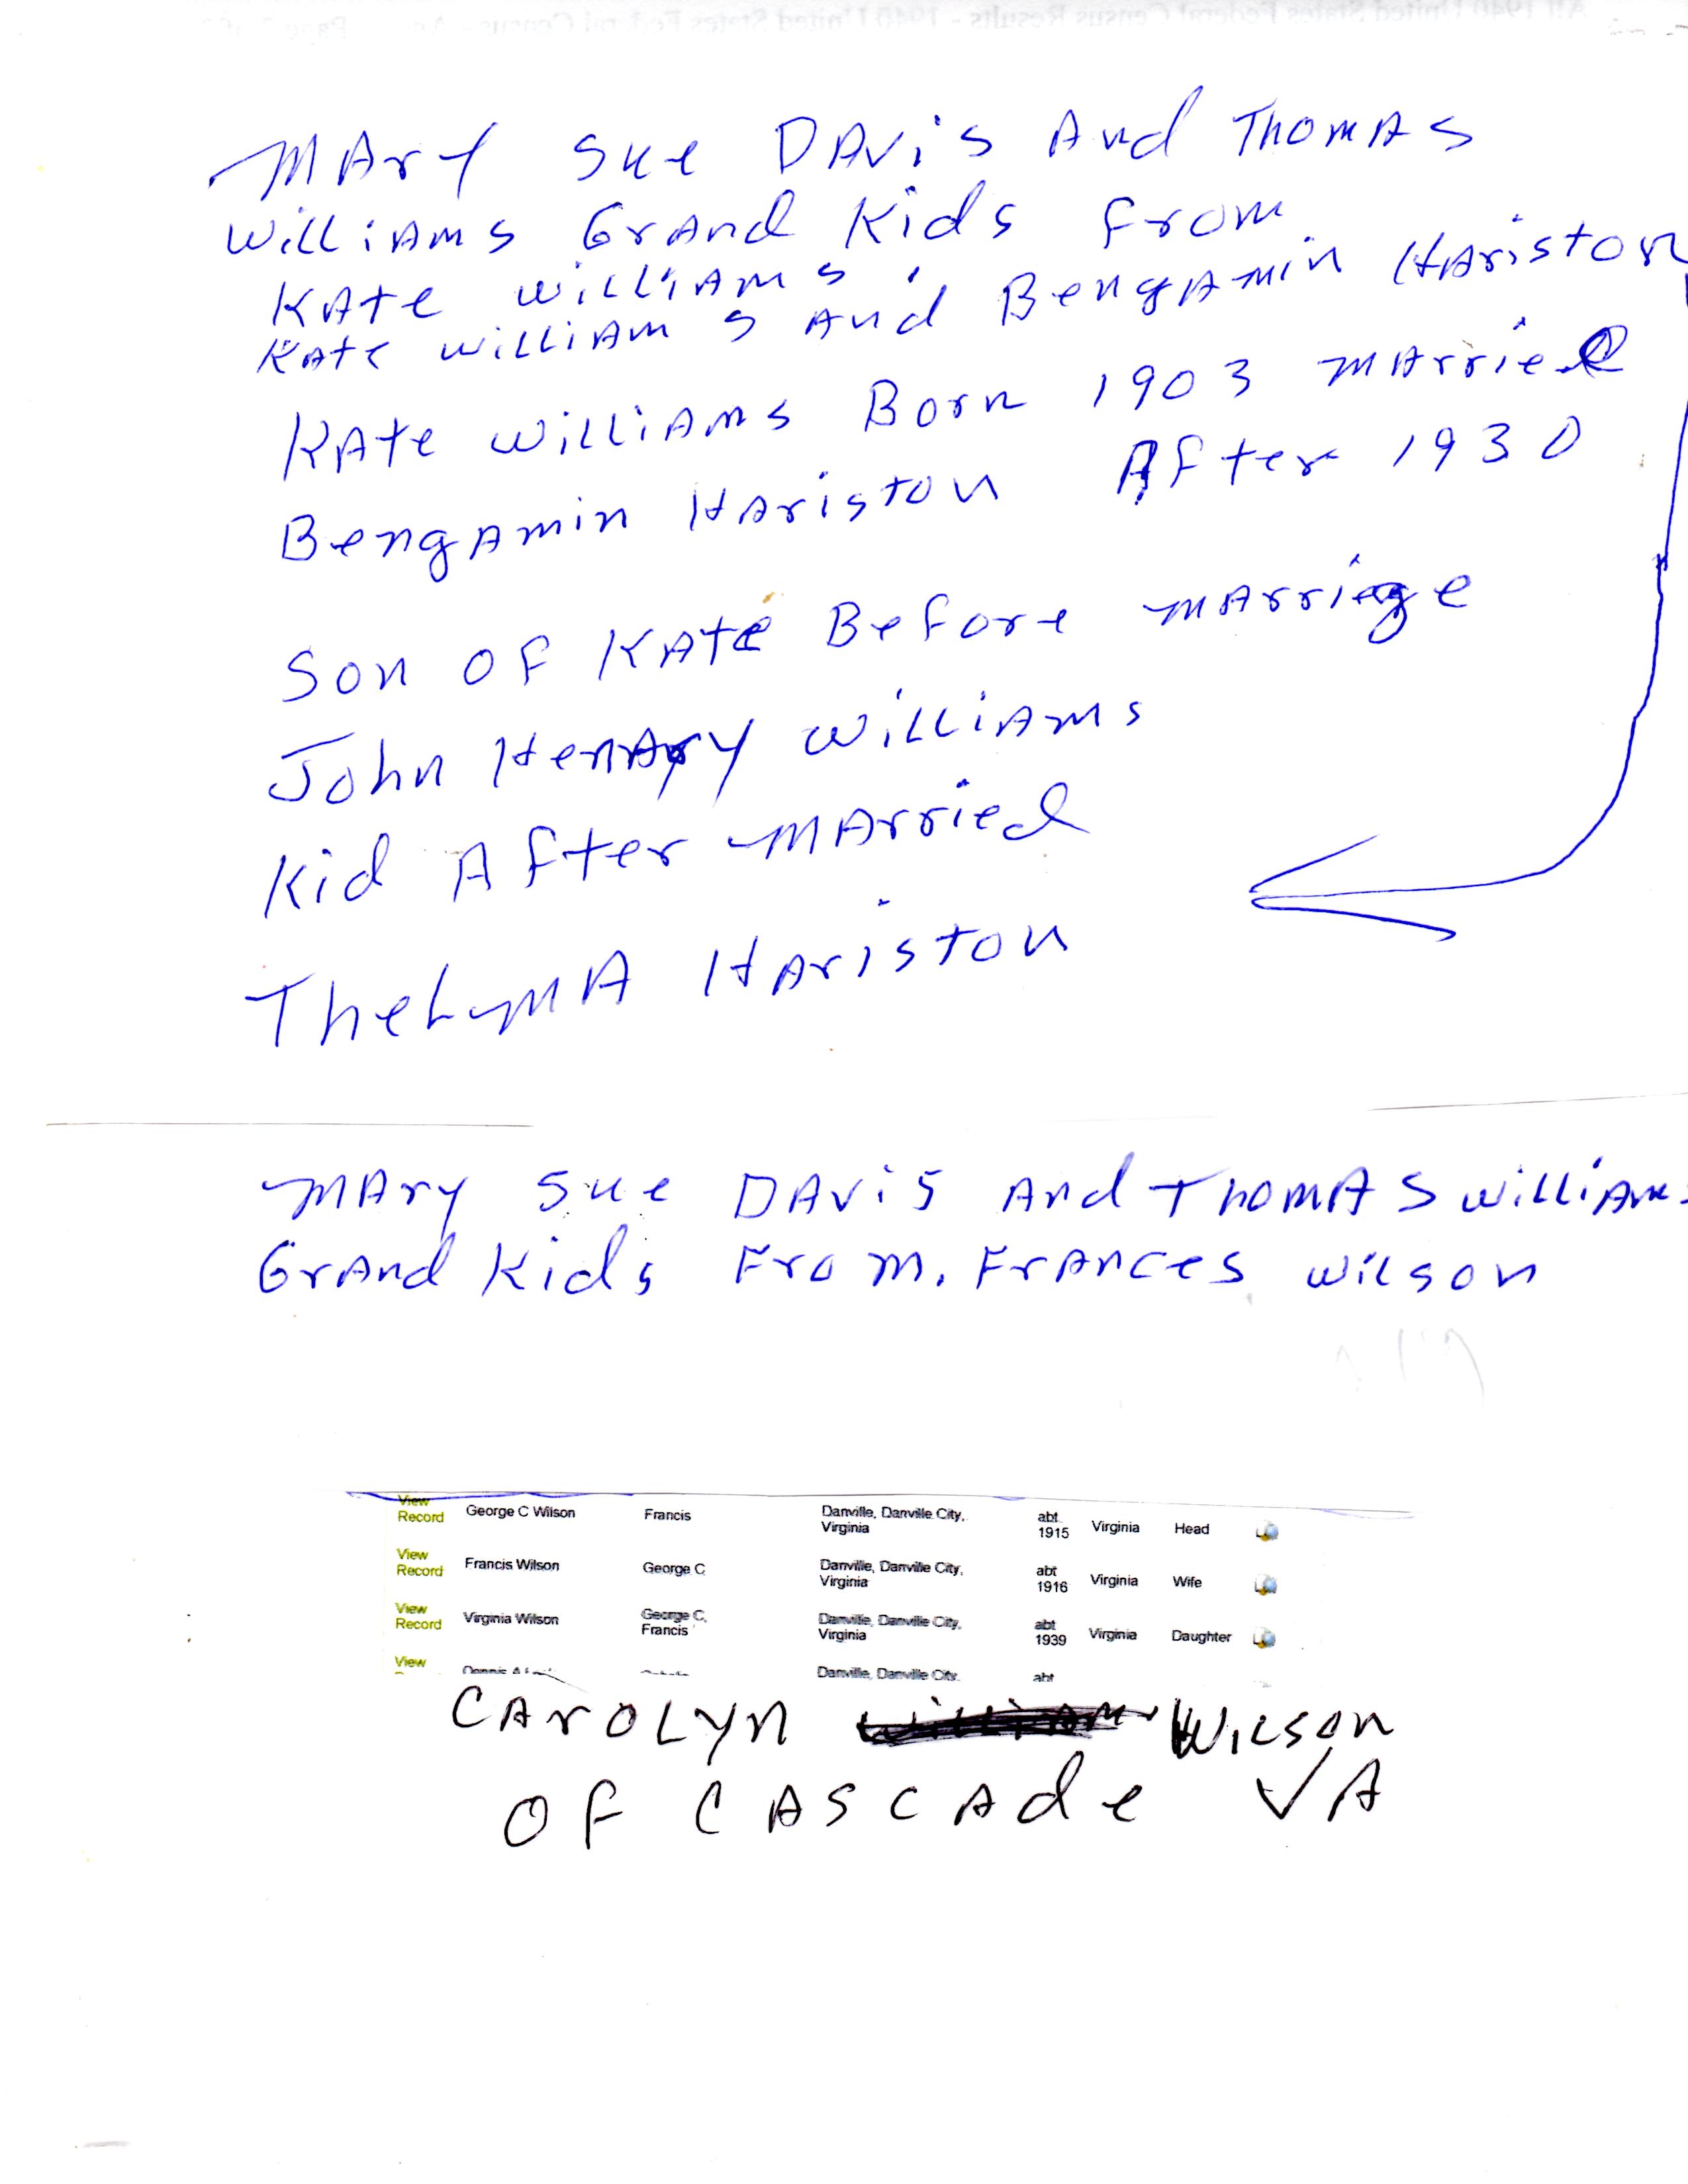 MAry Sue DAvis And ThomAs
WilliAms GrAnd Kids From
KAte WilliAms
KAte WilliAms And BengAmin HAriston
KAte WilliAms Born 1903 mArried
BengAmin HAriston After 1930
Son OF KAte Before mArriage
John Henry WilliAms
Kid After mArried
TheLmA HAriston
MAry Sue DAvis And ThomAs WilliAms
GrAnd Kids From. FrAnces Wilson
View Record George C Wilson Francis Danville, Danville City, Virginia abt 1915 Virginia Head
View Record Francis Wilson George C Danville, Danville City, Virginia abt 1916 Virginia Wife
View Record Virginia Wilson George C, Francis Danville, Danville City, Virginia abt 1939 Virginia Daughter
View Danville, Danville City, abt
CAroLyn Wilson
OF CAscAde VA